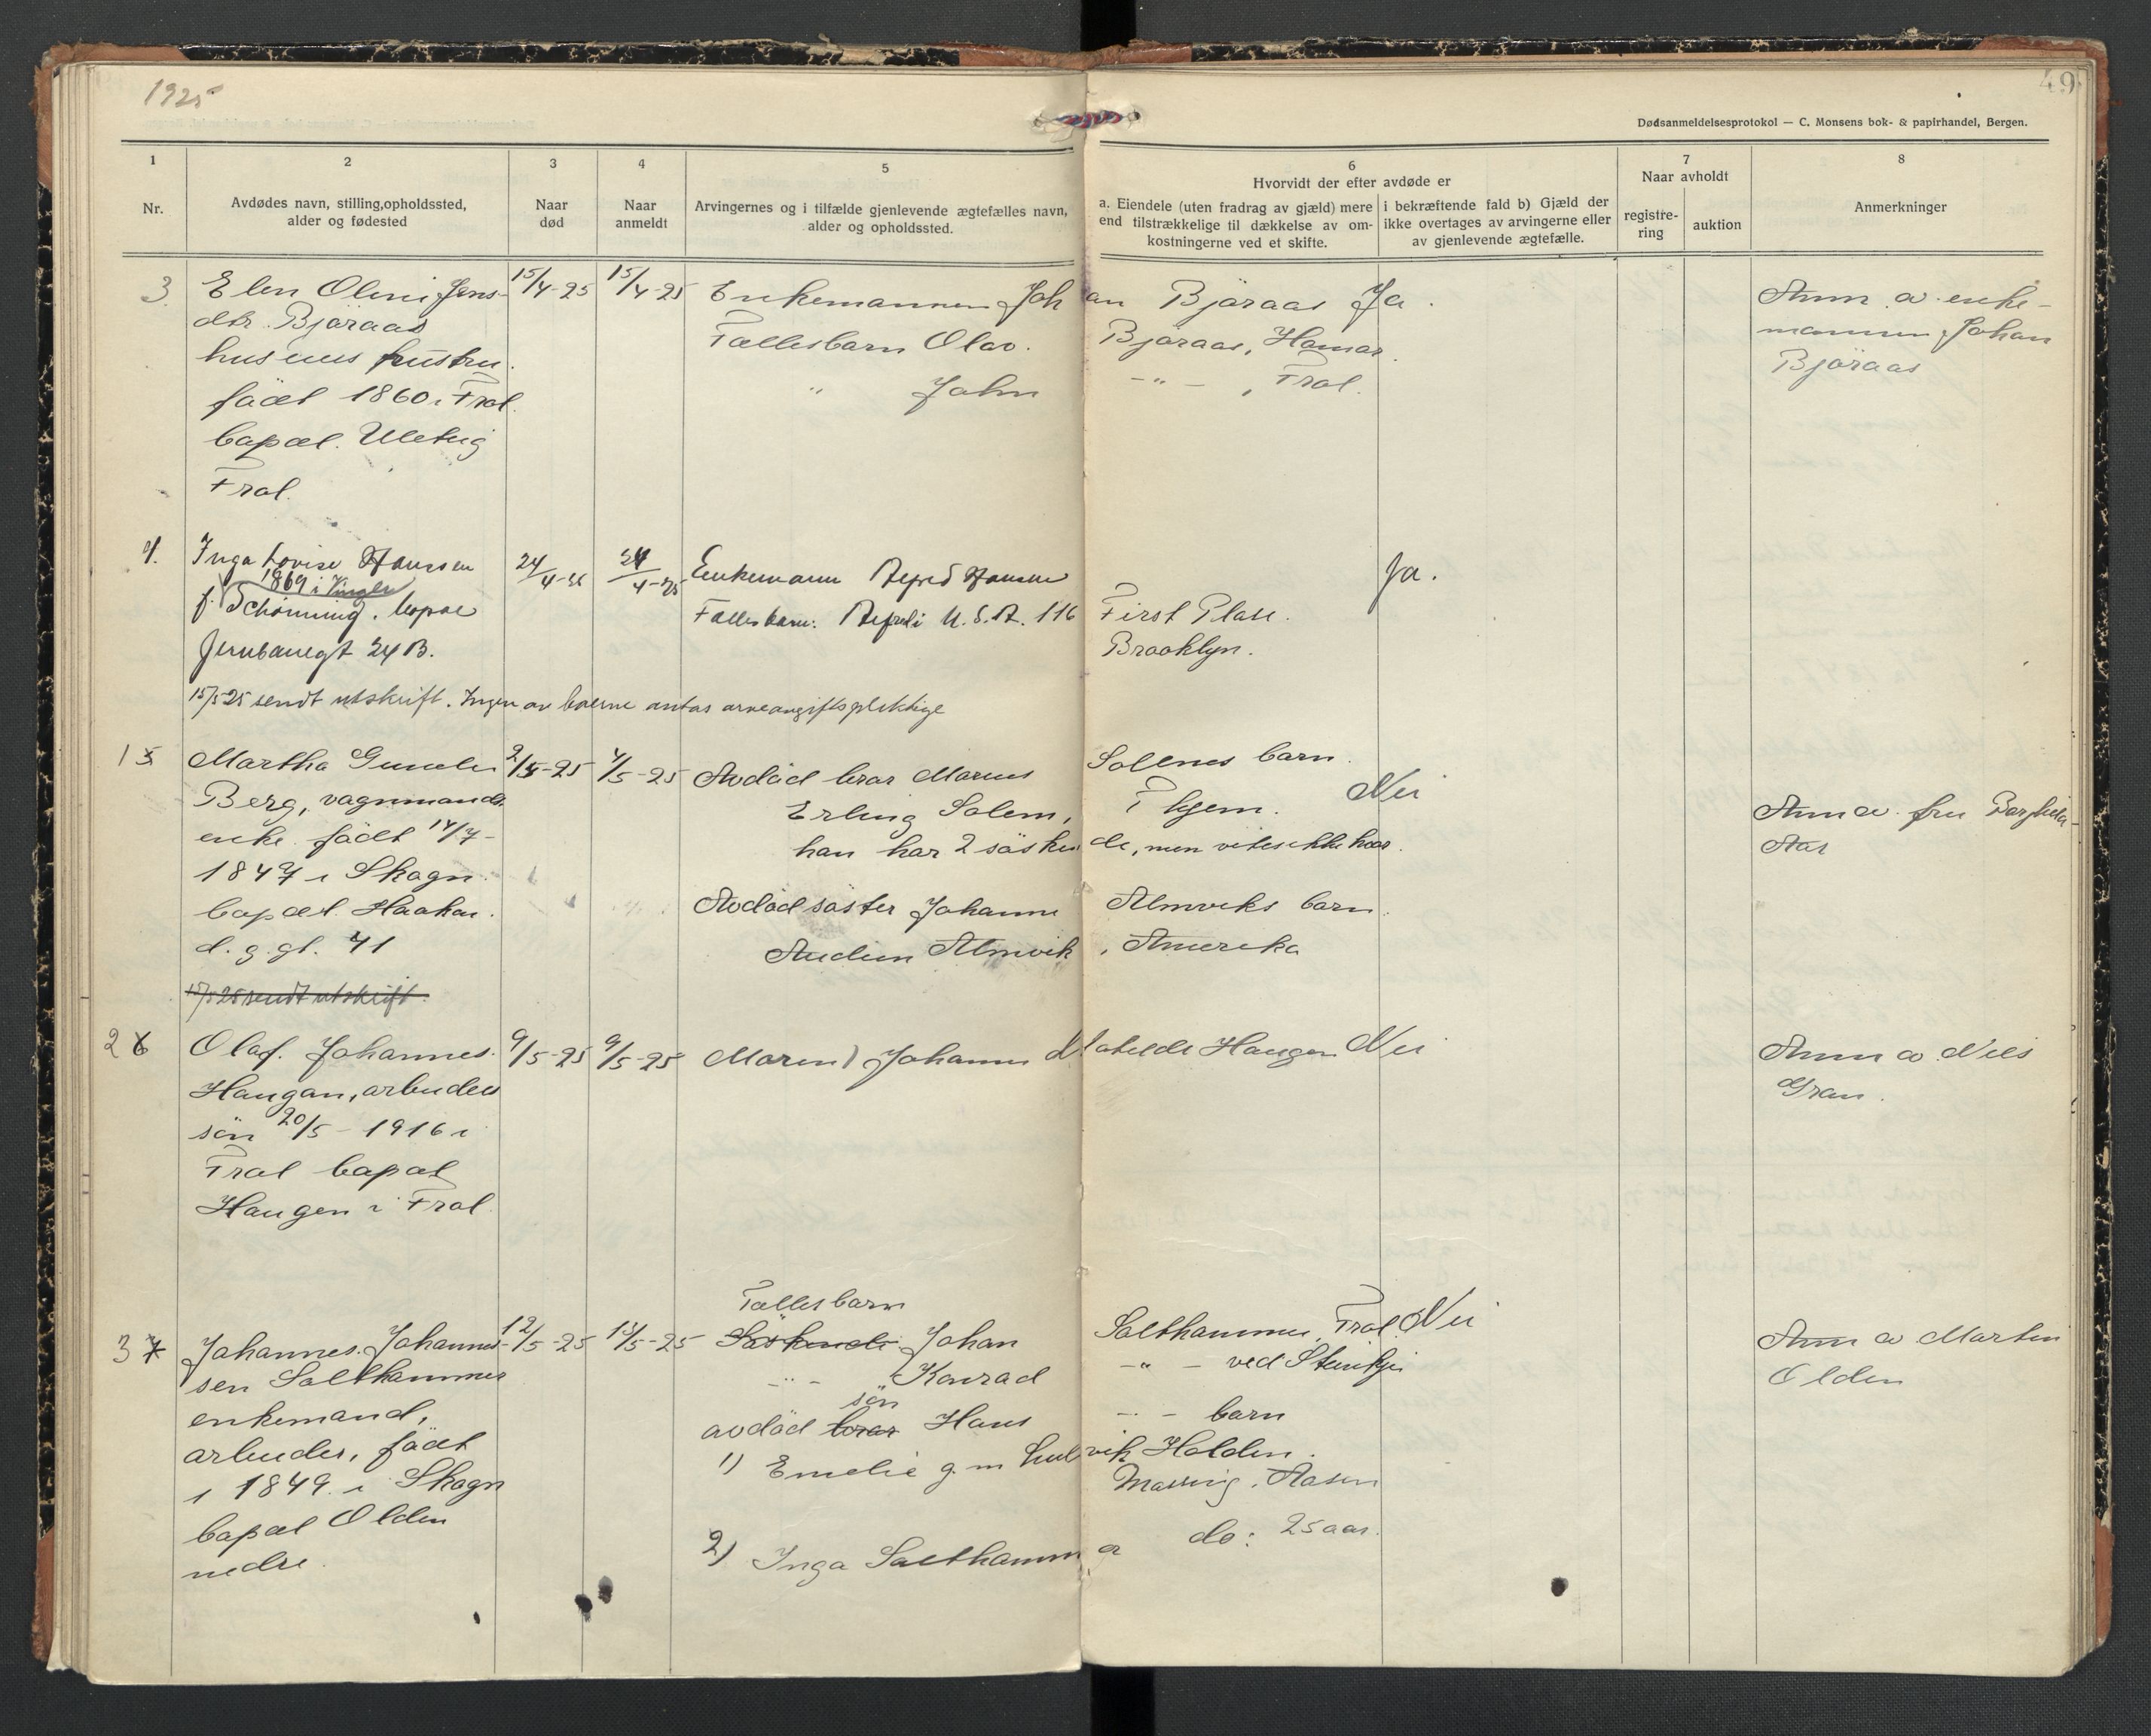 1925
49
Dødsanmeldelsesprotokol — C. Monsens bok- & papirhandel, Bergen.
1
Nr.
2
Avdødes navn, stilling, opholdssted,
alder og fødested
3
Naar
død
4
Naar
anmeldt
5
Arvingernes og i tilfælde gjenlevende ægtefælles navn,
alder og opholdssted.
6
Hvorvidt der efter avdøde er
a. Eiendele (uten fradrag av gjæld) mere
end tilstrækkelige til dækkelse av om-
kostningerne ved et skifte.
i bekræftende fald b) Gjæld der
ikke overtages av arvingerne eller
av gjenlevende ægtefælle.
7
Naar avholdt
registre-
ring
auktion
8
Anmerkninger
3. Elen Oleni Jens- 15/4-25 15/4-25 Enkemannen Johan Bjøraas Ja. Anm. av enke-
dtr. Bjøraas Fællesbarn Olav. Bjøraas, Hamar. mannen Johan
husmus hustru. " John -"- , Frol. Bjøraas
födt 1860 i Frol.
bopæl.
Frol.
4. Inga Lovise Hanssen 24/4-25 24/4-25 Enkemann Alfred Hansen Ja.
1869 i
f. Schönning. bopæl Fællesbarn: Alfred i U.S.A. 116 First Plase.
Jernbanegt 24 B. Brooklyn.
15/5 25 sendt utskrift. Ingen av boerne antas arveavgiftspliktige
1 5 Martha 2/5-25 4/5-25 Avdød bror Marius Solems barn. Nei
Berg, vognmands Erling Solem, Thjem. Anm av. fru
enke födt 14/7- han har 2 søskende, men vites ikke hvor. Aas
1847 i Skogn.
bopæl. Haakon Avdød søster Johanne Almviks barn.
d. g. gt. 41 Audun Almvik, Amerika
15/5 25 sendt utskrift.
2 6 Olaf. Johannes. 9/5-25 9/5-25 Moren) Johanna Matilde Haugen Nei Anm av Nils
Haugan, arbeiders Gran.
søn 20/5 - 1916 i
Frol bopæl
Haugen i Frol.
Fællesbarn
3 7 Johannes. Johannes- 12/5-25 13/5-25 Søskende Johan Salthammer, Frol. Nei Anm av Martin
sen Salthammer -"- Konrad -"- ved Steinkjer Olden
enkemand, søn
arbeider, födt avdød bror Hans -"- barn
i 1849. i Skogn 1) Emelie g. m. Holden.
bopæl Olden Aasen
nedre. 2) Inga Salthammer do: 25 aar.